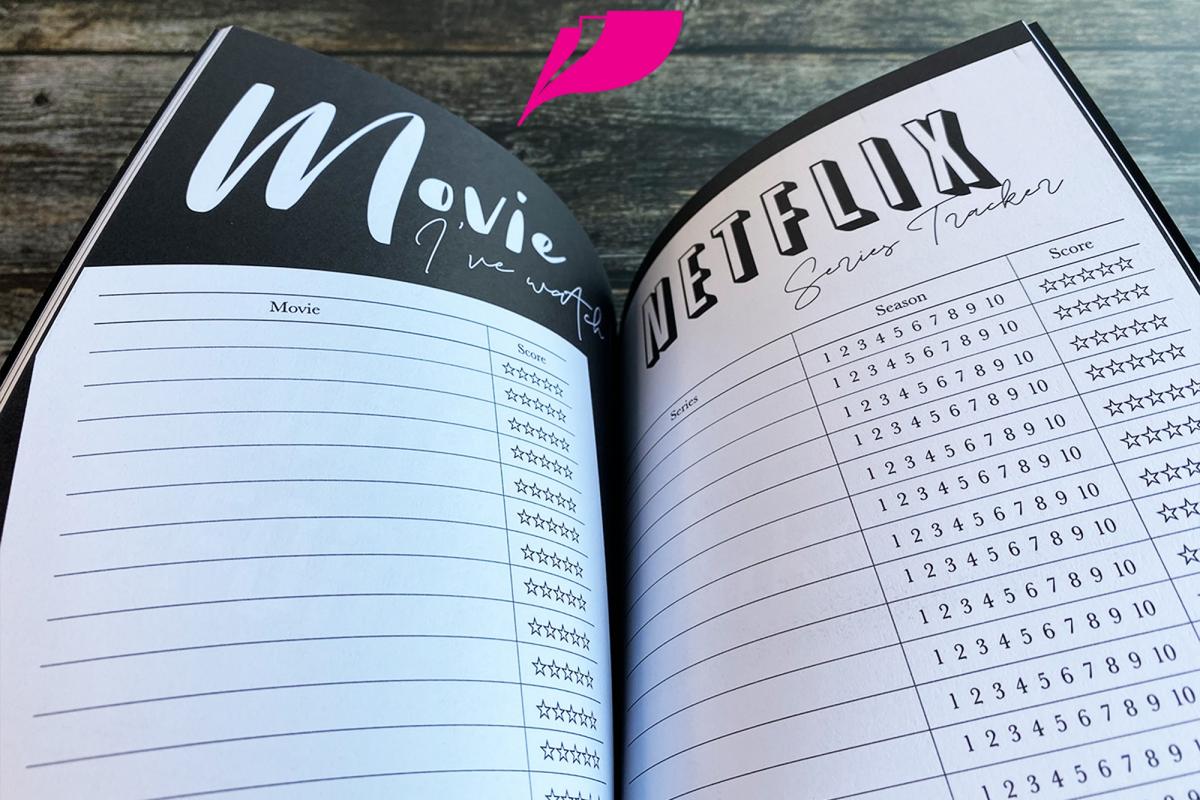 Movie
I've watch
Movie
Score
NETFLIX
Series Tracker
Series Season Score
1 2 3 4 5 6 7 8 9 10
1 2 3 4 5 6 7 8 9 10
1 2 3 4 5 6 7 8 9 10
1 2 3 4 5 6 7 8 9 10
1 2 3 4 5 6 7 8 9 10
1 2 3 4 5 6 7 8 9 10
1 2 3 4 5 6 7 8 9 10
1 2 3 4 5 6 7 8 9 10
1 2 3 4 5 6 7 8 9 10
1 2 3 4 5 6 7 8 9 10
1 2 3 4 5 6 7 8 9 10
1 2 3 4 5 6 7 8 9 10
1 2 3 4 5 6 7 8 9